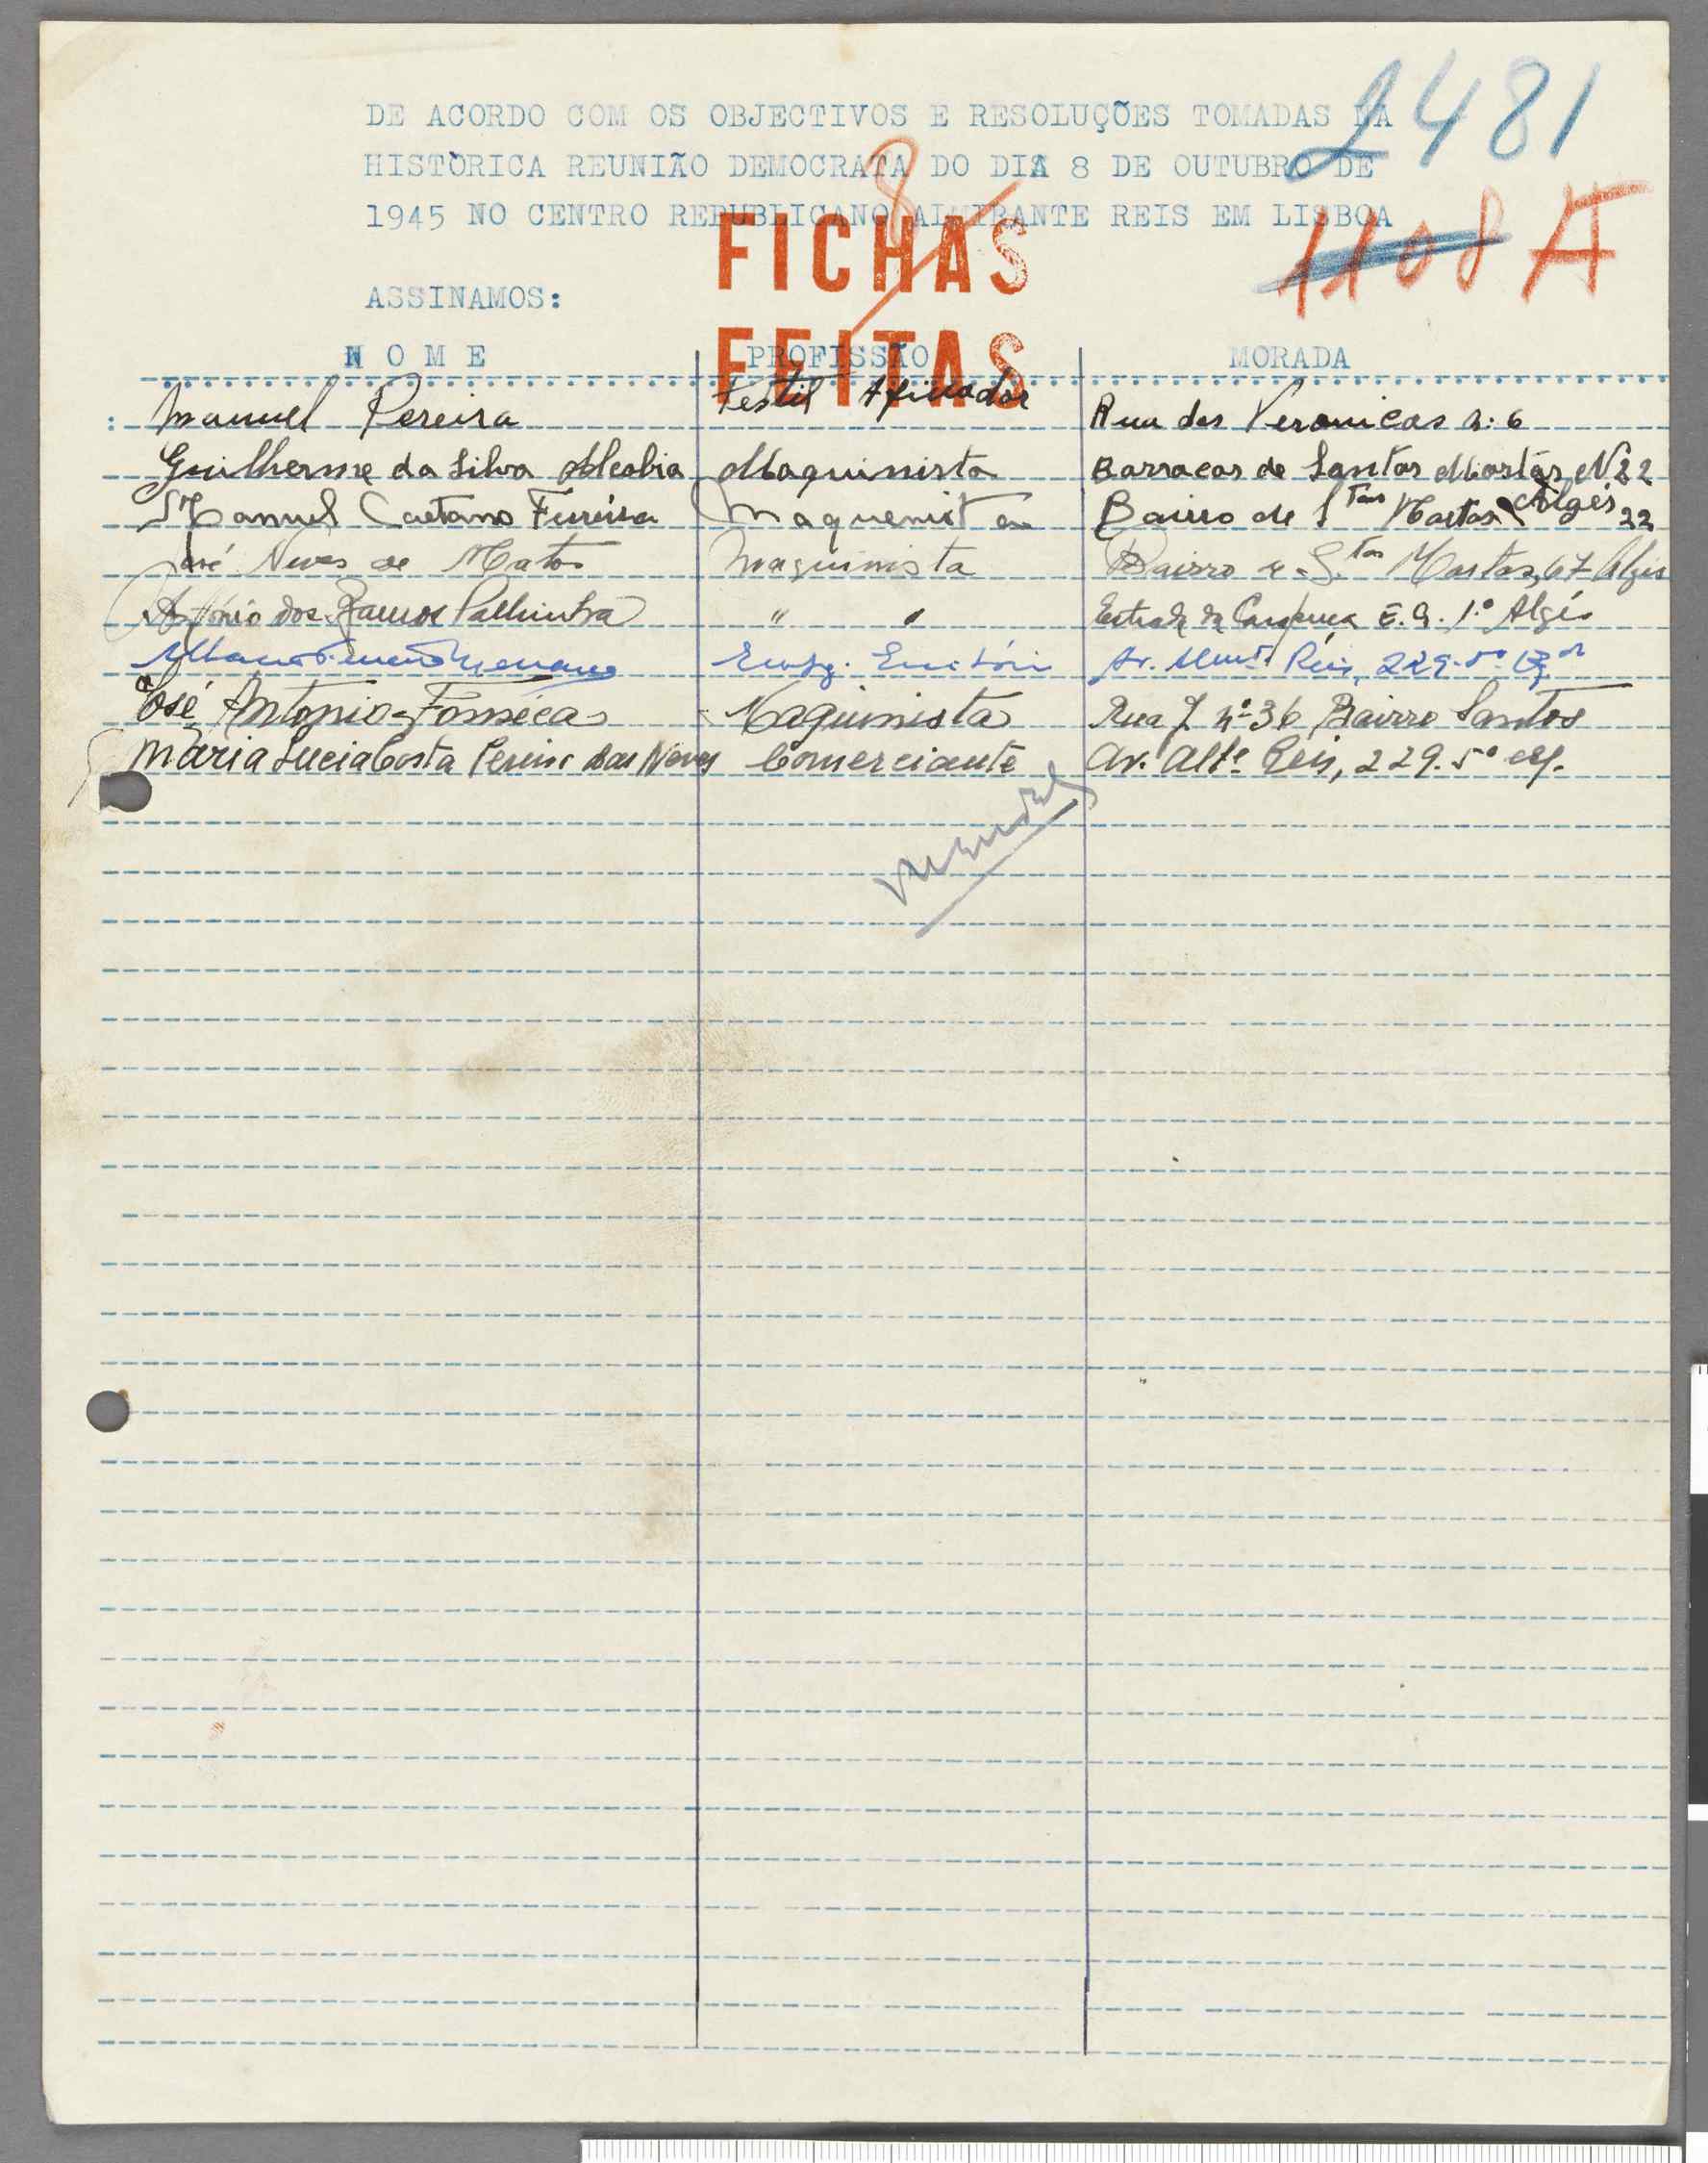 2481
DE ACORDO COM OS OBJECTIVOS E RESOLUÇÕES TOMADAS NA
HISTÒRICA REUNIÃO DEMOCRATA DO DIA 8 DE OUTUBRO DE
1945 NO CENTRO REPUBLICANO ALMIRANTE REIS EM LISBOA
8
1108 A
FICHAS
FEITAS
ASSINAMOS:
NOME PROFISSÃO MORADA
Manuel Pereira Textil Afinador Rua das Veronicas n: 6
Guilherme da Silva Maquinista Barracas de Santos N 22
Manuel Caetano Maquenista Bairro de Stas Martas Algés 22
José Neves de Matos Maquinista Bairro Stas Martas, 67 Algés
António dos Ramos Palhinha " " Estrada da 1.º Algés
Av. Almte Reis, 229-5º
José Antonio Fonseca Maquinista Rua J nº 36 Bairro Santos
Maria Lucia Costa das Neves Comerciante Av. Alte Reis, 229.5º